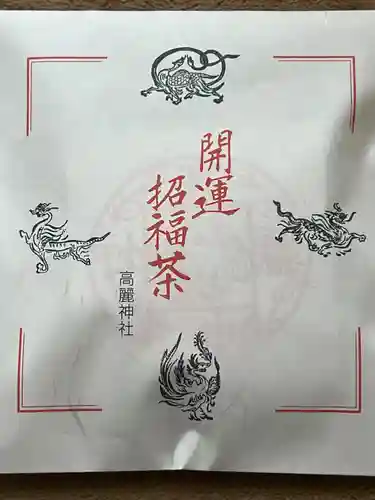 開運
招福茶
高麗神社